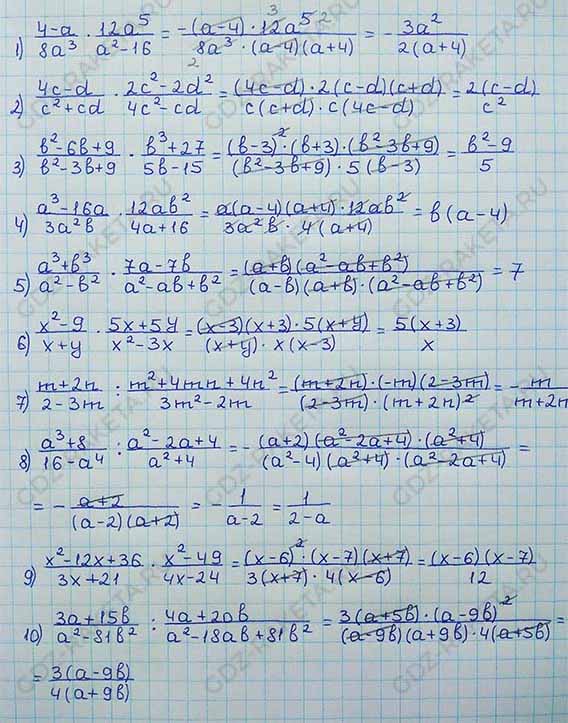 1) (4-a)/(8a³) · (12a⁵)/(a²-16) = (-(a-4) · 12a⁵)/(8a³ · (a-4)(a+4)) = - (3a²)/(2(a+4))
2) (4c-d)/(c²+cd) · (2c²-2d²)/(4c²-cd) = ((4c-d) · 2(c-d)(c+d))/(c(c+d) · c(4c-d)) = (2(c-d))/(c²)
3) (b²-6b+9)/(b²-3b+9) · (b³+27)/(5b-15) = ((b-3)² · (b+3) · (b²-3b+9))/((b²-3b+9) · 5(b-3)) = (b²-9)/5
4) (a³-16a)/(3a²b) · (12ab²)/(4a+16) = (a(a-4)(a+4) · 12ab²)/(3a²b · 4(a+4)) = b(a-4)
5) (a³+b³)/(a²-b²) · (7a-7b)/(a²-ab+b²) = ((a+b)(a²-ab+b²))/((a-b)(a+b) · (a²-ab+b²)) = 7
6) (x²-9)/(x+y) · (5x+5y)/(x²-3x) = ((x-3)(x+3) · 5(x+y))/((x+y) · x(x-3)) = (5(x+3))/x
7) (m+2n)/(2-3m) : (m²+4mn+4n²)/(3m²-2m) = ((m+2n) · (-m)(2-3m))/((2-3m) · (m+2n)²) = - m/(m+2n
8) (a³+8)/(16-a⁴) : (a²-2a+4)/(a²+4) = - ((a+2)(a²-2a+4) · (a²+4))/((a²-4)(a²+4) · (a²-2a+4)) =
= - (a+2)/((a-2)(a+2)) = - 1/(a-2) = 1/(2-a)
9) (x²-12x+36)/(3x+21) · (x²-49)/(4x-24) = ((x-6)² · (x-7)(x+7))/(3(x+7) · 4(x-6)) = ((x-6)(x-7))/12
10) (3a+15b)/(a²-81b²) : (4a+20b)/(a²-18ab+81b²) = (3(a+5b) · (a-9b)²)/((a-9b)(a+9b) · 4(a+5b)) =
= (3(a-9b))/(4(a+9b))
GDZ-RAKETA.RU